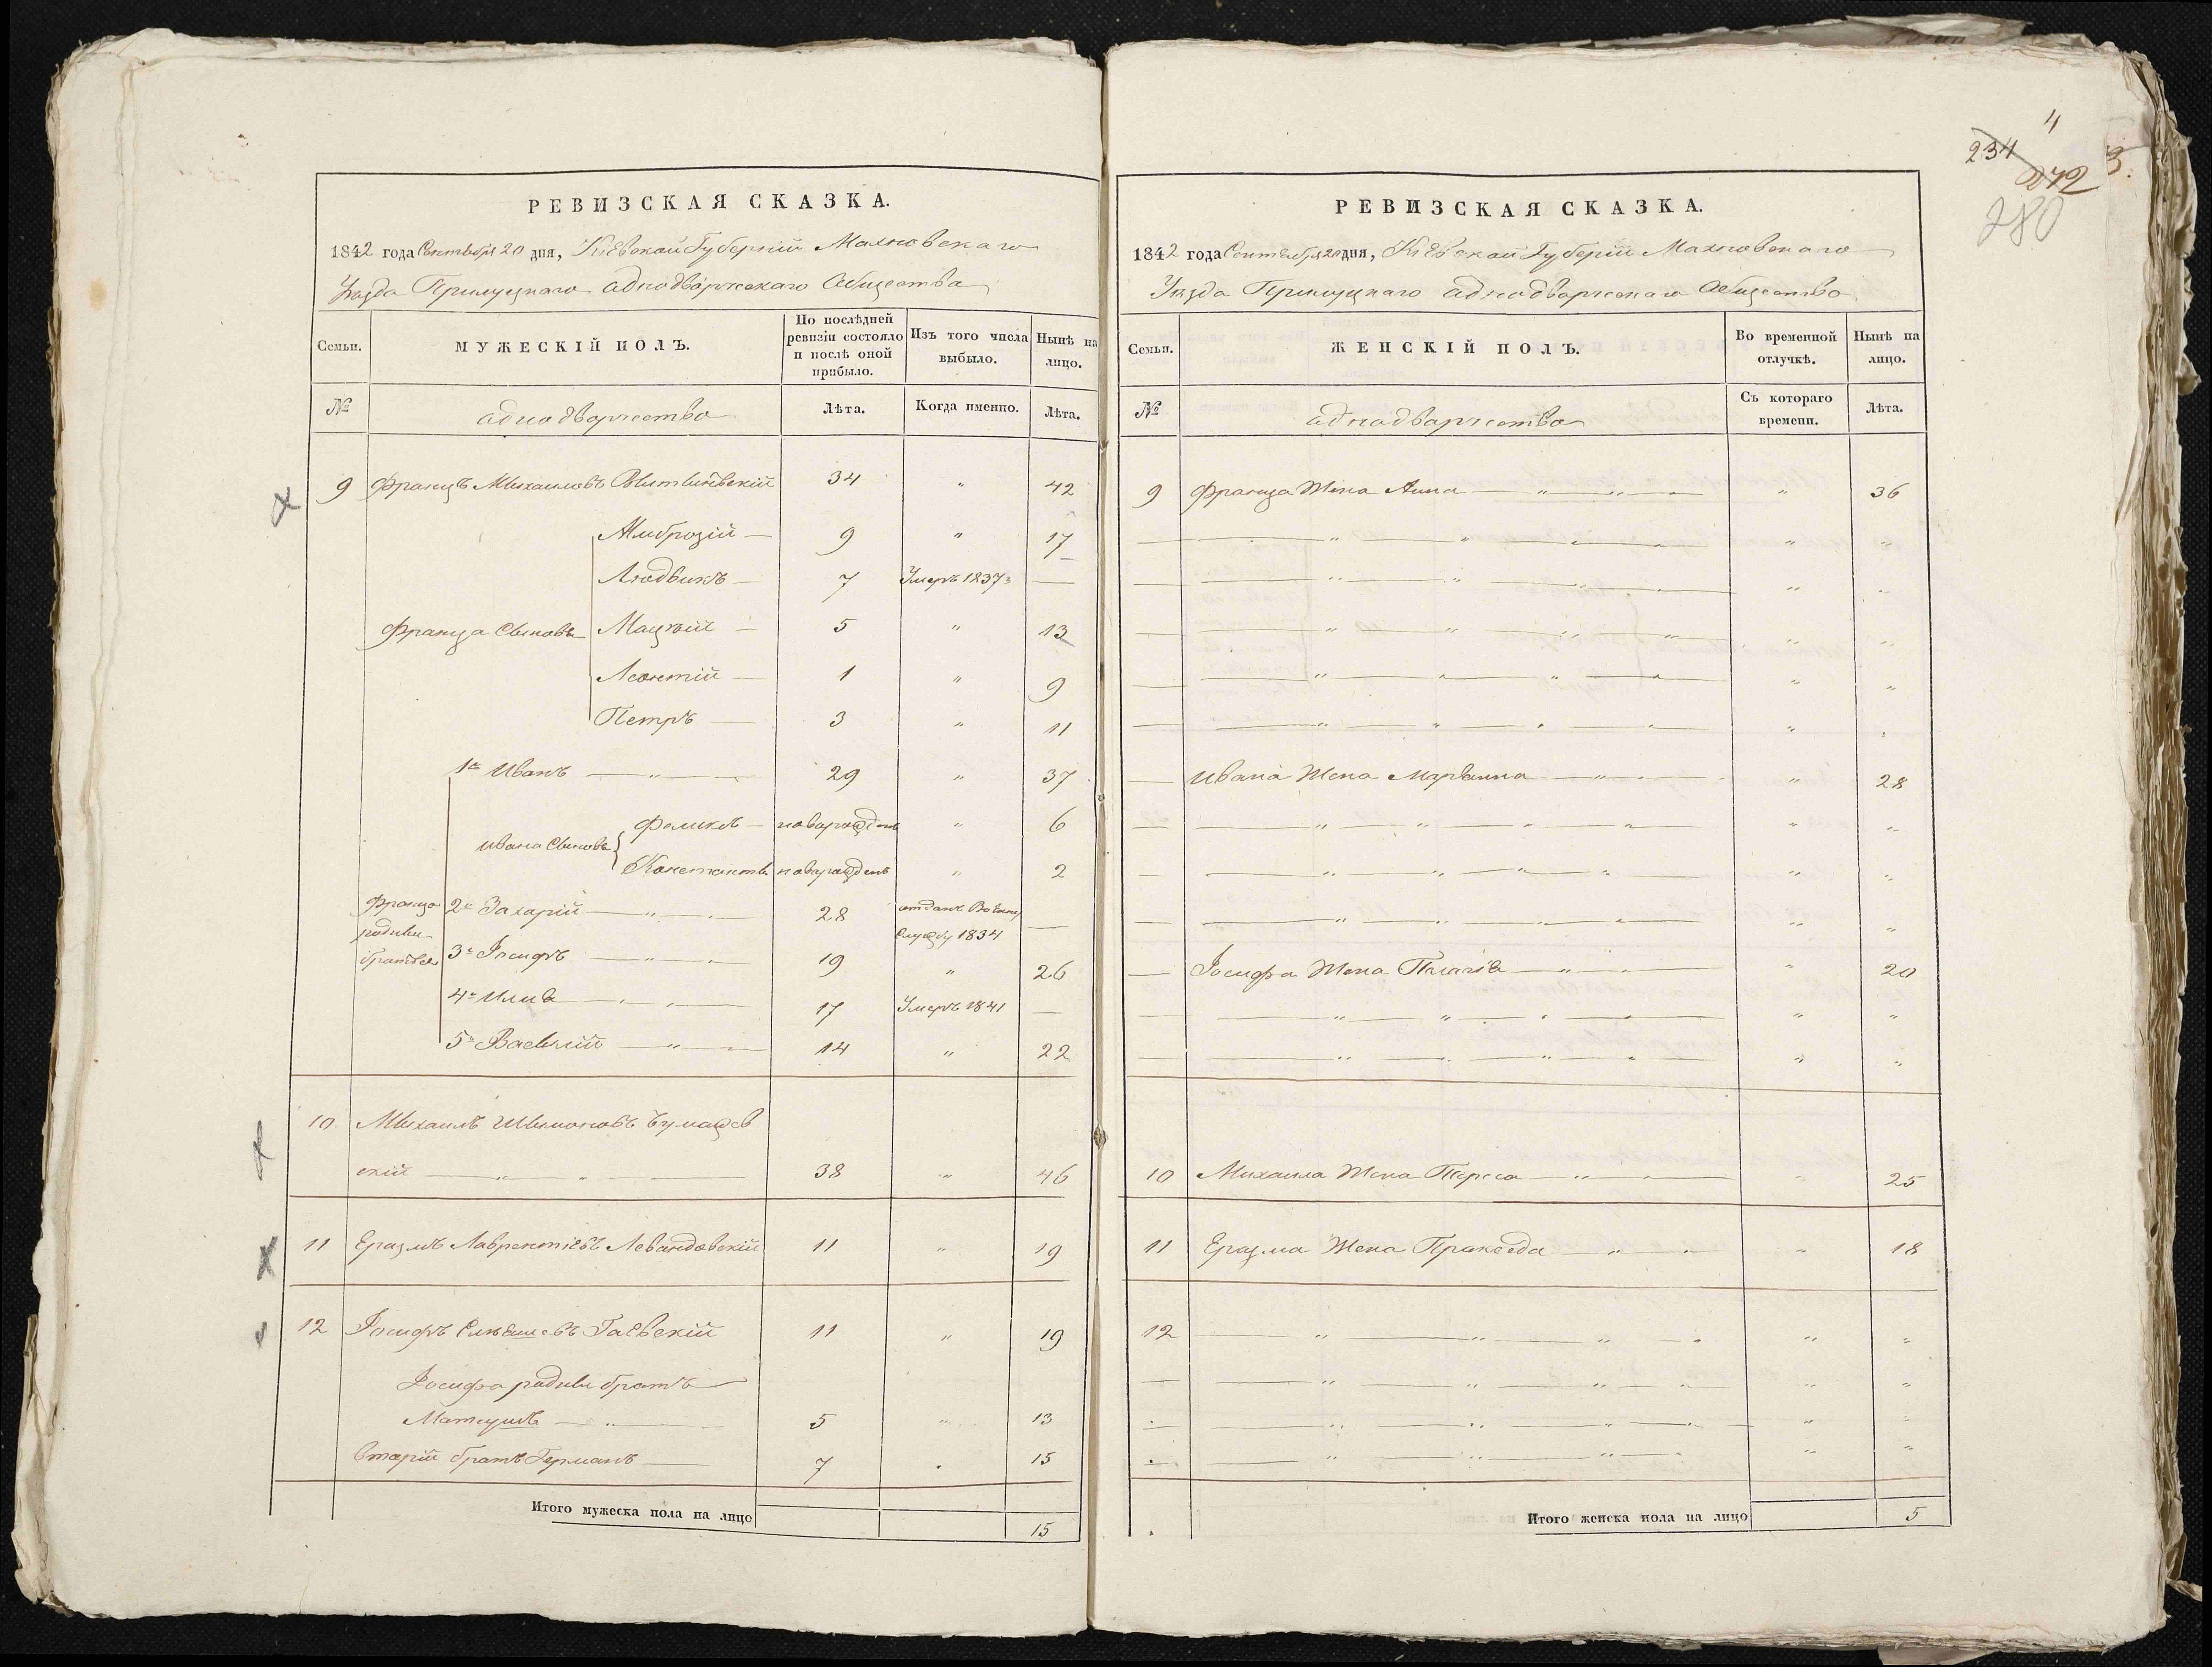 4
234
272
3.
280
РЕВИЗСКАЯ СКАЗКА.
1842 года Сентября 20 дня, Кіевской Губерніи Махновскаго
Уѣзда Прилуцкаго аднодворческаго Общества
Семьи.
МУЖЕСКІЙ ПОЛЪ.
По послѣдней ревизіи состояло и послѣ оной прибыло.
Изъ того числа выбыло.
Нынѣ на лицо.
№
аднодворчество
Лѣта.
Когда именно.
Лѣта.
9 Францъ Михаиловъ 34 " 42
Амброзій — 9 " 17
Людвикъ — 7 Умеръ 1837 —
Франца Сыновья Мацѣй — 5 " 13
Леонтій — 1 " 9
Петръ — 3 " 11
1й Иванъ — " — 29 " 37
Феликъ — новорожденъ " 6
Ивана Сыновья
Константъ новорожденъ " 2
Франца родные братья
2й Захарій — " — 28 отданъ Воѣнну Службу 1834 —
3й Іосифъ — " — 19 " 26
4й Илія — " — 17 Умеръ 1841 —
5й Василій — " — 14 " 22
10 Михаилъ Шимоновъ
скій — " — 38 " 46
11 Еразмъ Лаврентіевъ Левандовскій 11 " 19
12 Іосифъ Гаевскій 11 " 19
Іосифа родны братъ
Матеушъ — " — 5 " 13
Вторій братъ Германъ — 7 " 15
Итого мужеска пола на лицо 15
РЕВИЗСКАЯ СКАЗКА.
1842 года Сентября 20 дня, Кіевской Губерніи Махновскаго
Уѣзда Прилуцкаго аднодворческаго Общество
Семьи.
ЖЕНСКІЙ ПОЛЪ.
Во временной отлучкѣ.
Нынѣ на лицо.
№
аднодворчество
Съ котораго времени.
Лѣта.
9 Франца Жена Анна — " — " 36
Ивана Жена Маріанна — " — " 28
Іосифа Жена Пелагія — " — " 20
10 Михаила Жена Тереса — " — " 25
11 Еразма Жена Пракседа — " — " 18
12 — " — " — " "
Итого женска пола на лицо 5